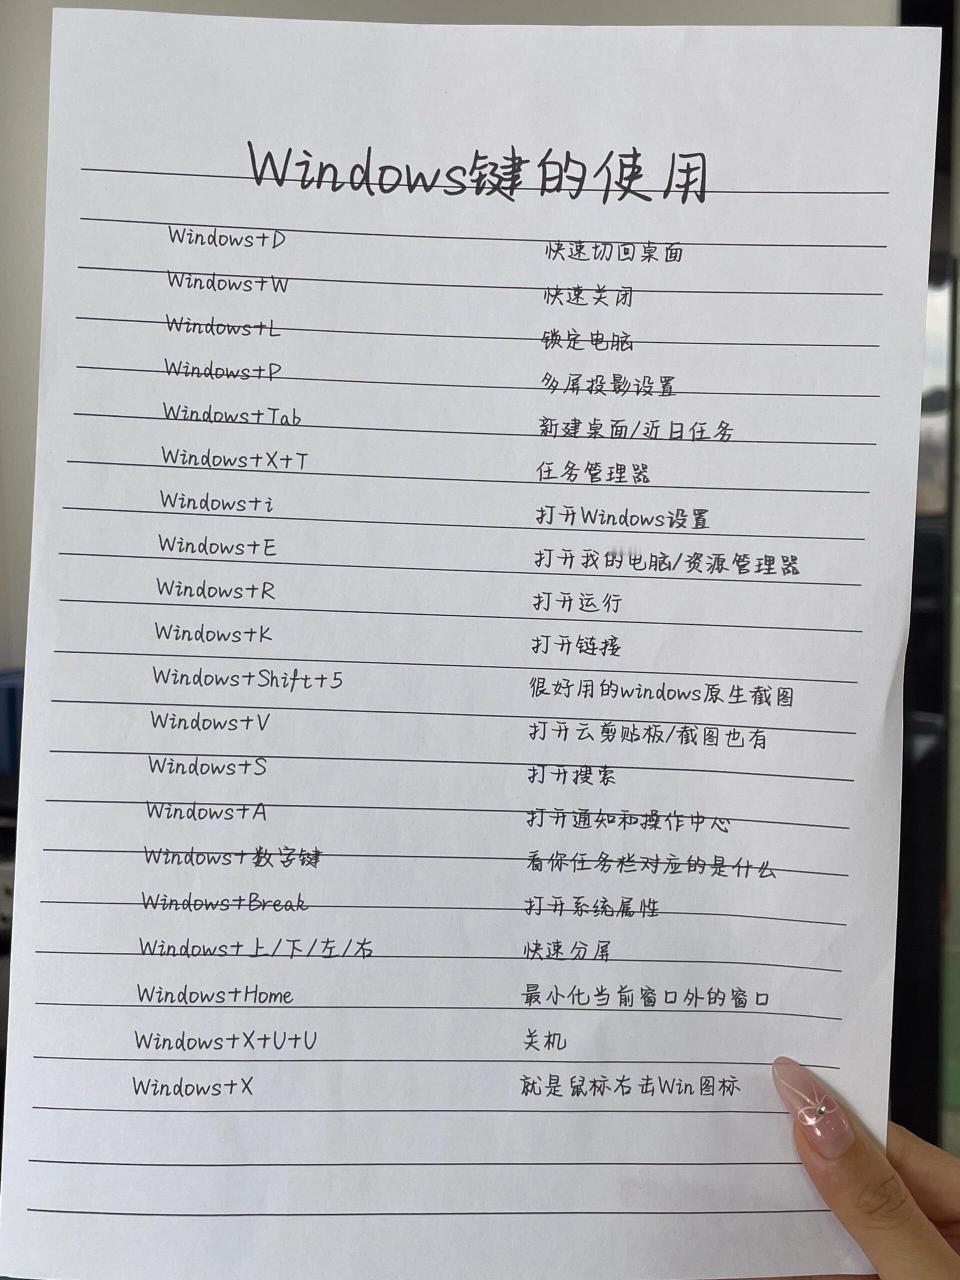 Windows键的使用
Windows+D 快速切回桌面
Windows+W 快速关闭
Windows+L 锁定电脑
Windows+P 多屏投影设置
Windows+Tab 新建桌面/近日任务
Windows+X+T 任务管理器
Windows+i 打开Windows设置
Windows+E 打开我的电脑/资源管理器
Windows+R 打开运行
Windows+K 打开链接
Windows+Shift+5 很好用的windows原生截图
Windows+V 打开云剪贴板/截图也有
Windows+S 打开搜索
Windows+A 打开通知和操作中心
Windows+数字键 看你任务栏对应的是什么
Windows+Break 打开系统属性
Windows+上/下/左/右 快速分屏
Windows+Home 最小化当前窗口外的窗口
Windows+X+U+U 关机
Windows+X 就是鼠标右击Win图标